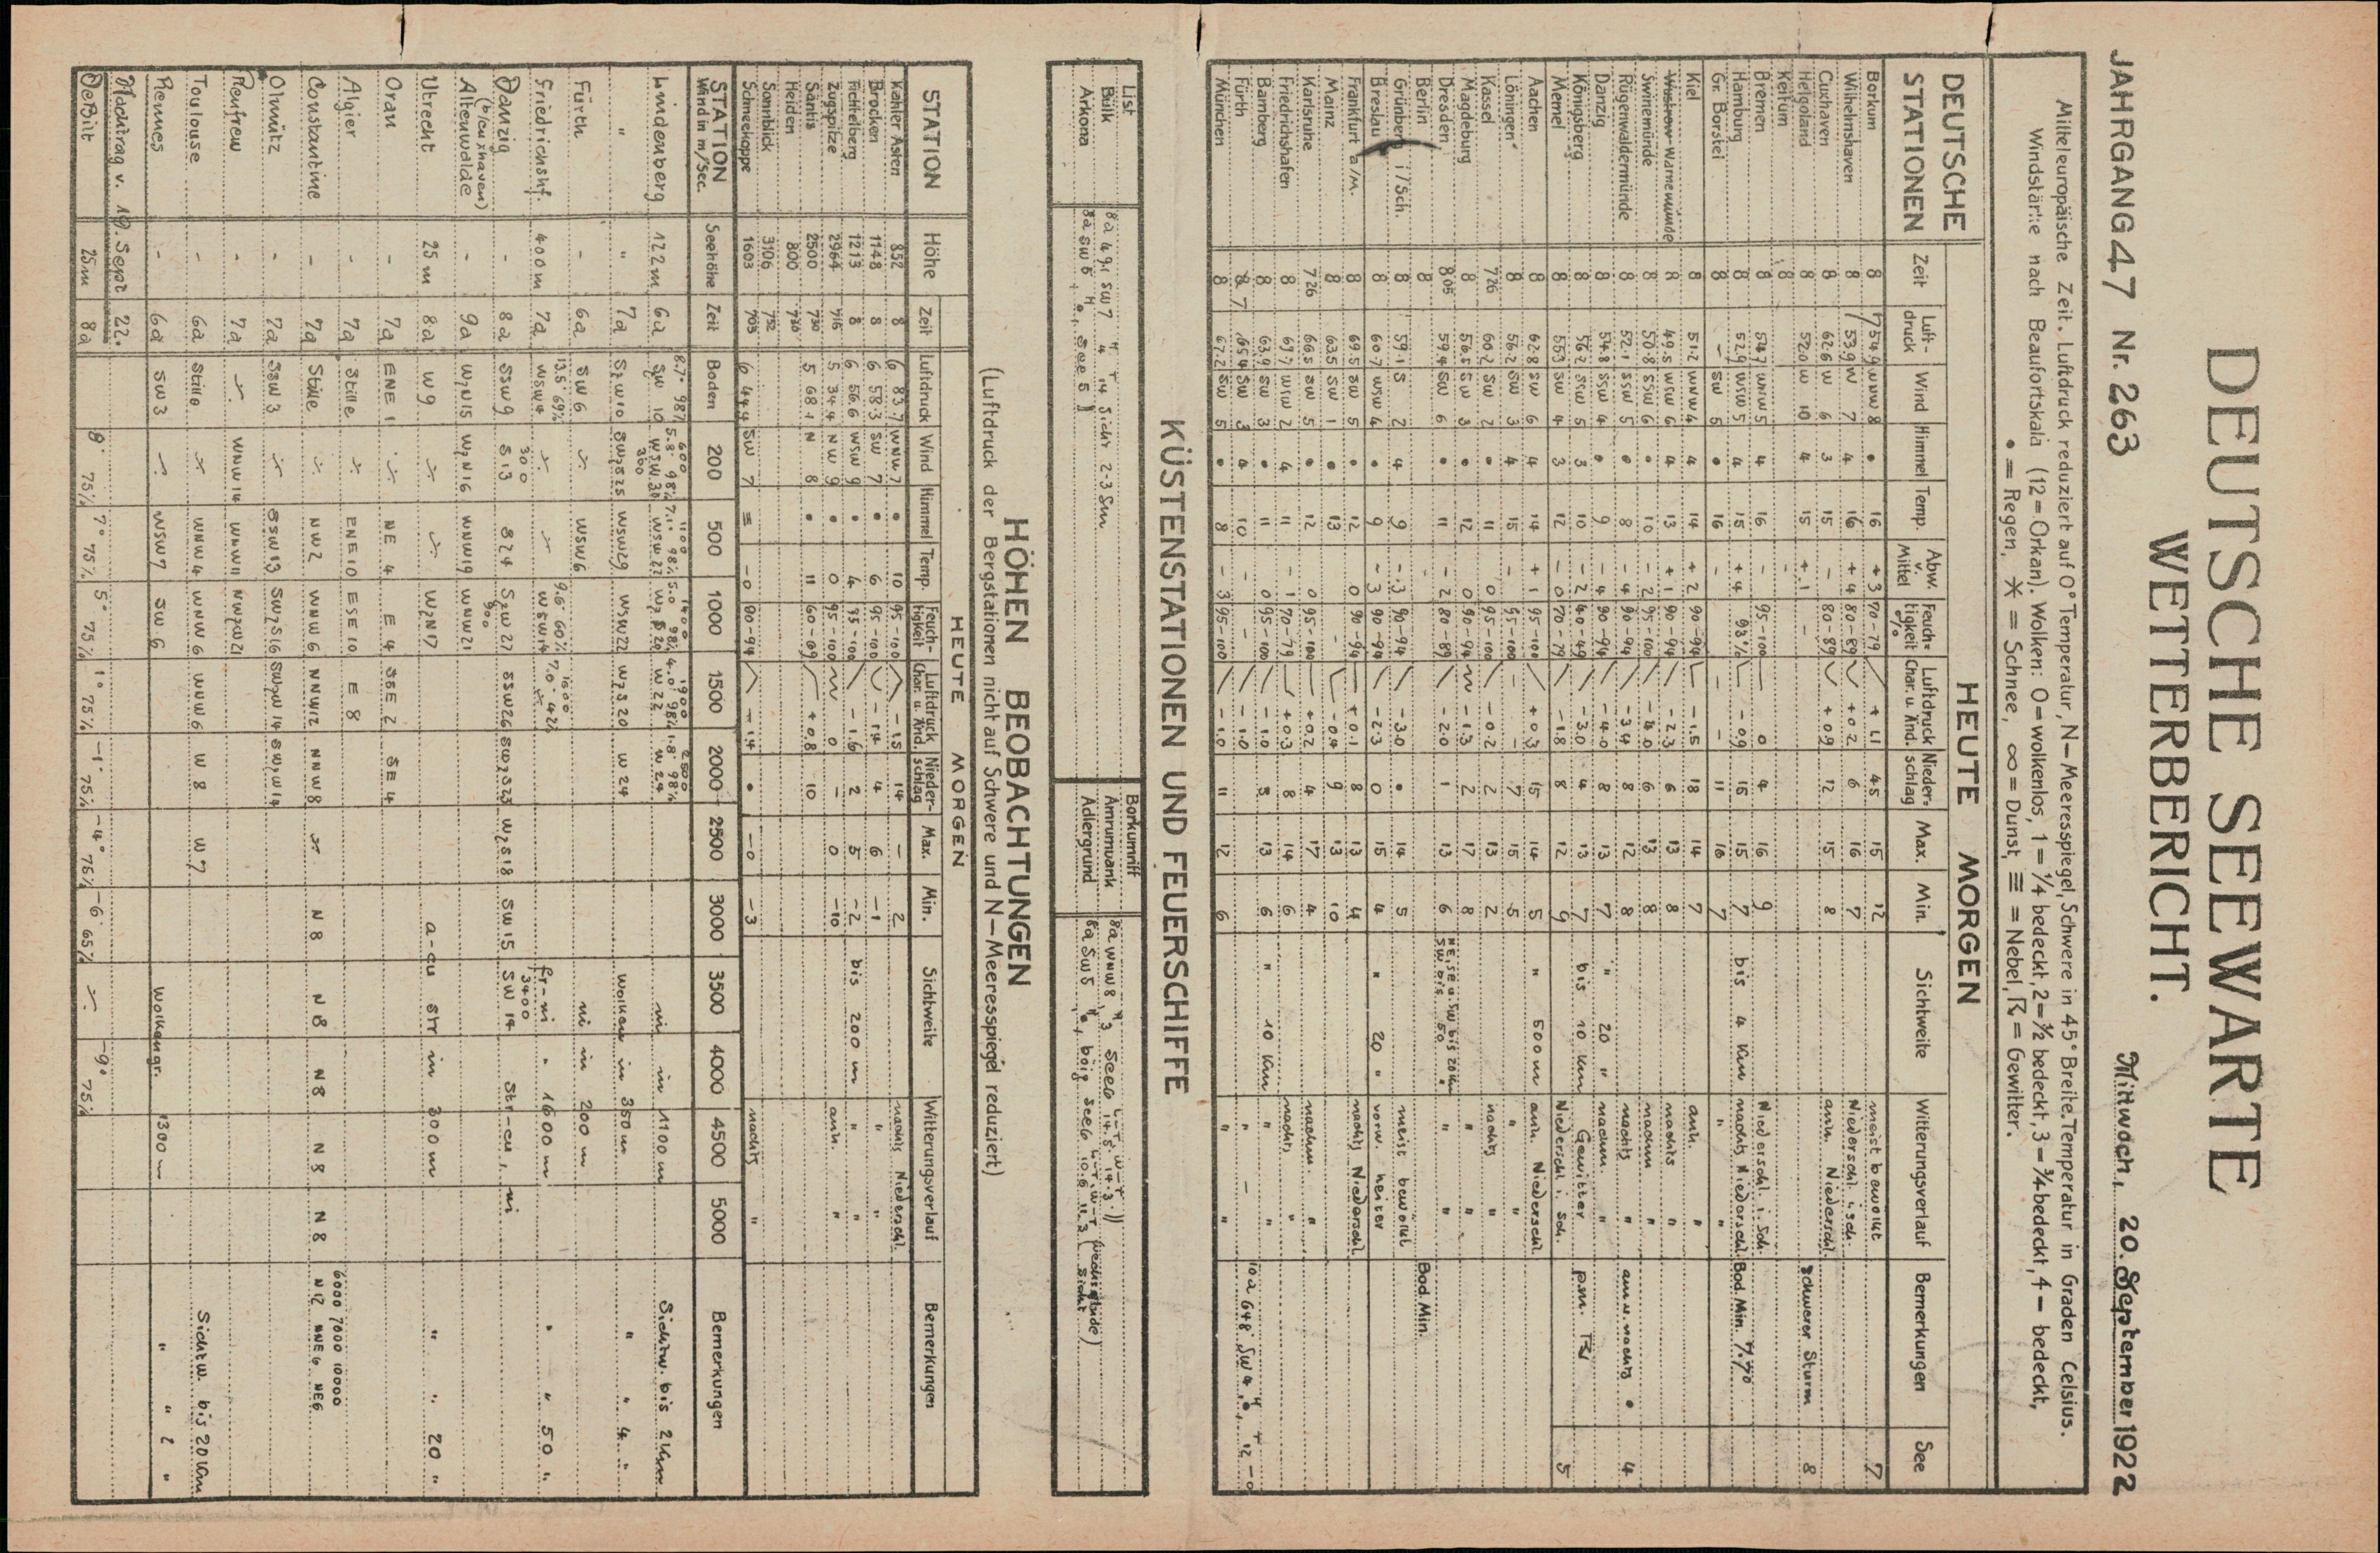 DEUTSCHE SEEWARTE
WETTERBERICHT.
JAHRGANG 47 Nr. 263 Mittwoch, 20. September 1922
Mitteleuropäische Zeit. Luftdruck reduziert auf 0° Temperatur, N–Meeresspiegel, Schwere in 45° Breite. Temperatur in Graden Celsius.
Windstärke nach Beaufortskala (12 = Orkan). Wolken: 0 = wolkenlos, 1 = ¼ bedeckt, 2 = ½ bedeckt, 3 = ¾ bedeckt, 4 = bedeckt,
• = Regen, ✳ = Schnee, ∞ = Dunst, ≡ = Nebel, ☈ = Gewitter.
DEUTSCHE STATIONEN HEUTE MORGEN
Zeit Luft-druck Wind Himmel Temp. Abw. v. Mittel Feuch=tigkeit % Luftdruck Char. u. Änd. Nieder=schlag Max. Min. Sichtweite Witterungsverlauf Bemerkungen See
Borkum 8 754.9 WNW 8 • 16 +3 70-79 +1.1 45 15 12 meist bewölkt 7
Wilhelmshaven 8 53.9 W 7 4 16 +4 80-89 +0.2 6 16 7 Niederschl. i. Sch.
Cuxhaven 8 62.6 W 6 3 15 – 80-89 +0.9 12 15 8 anh. Niederschl.
Helgoland 8 52.0 W 10 4 15 +1 – schwerer Sturm 8
Keitum 8 -
Bremen 8 54.7 WNW 5 4 16 - 95-100 0 4 16 9 Niederschl. i. Sch.
Hamburg 8 52.9 WSW 5 4 15 +4 93% -0.9 16 15 7 bis 4 km nachts Niederschl. Bod. Min. 7.70
Gr. Borstel 8 – SW 5 • 16 - - - 11 16 7 " "
Kiel 8 51.2 WNW 4 4 14 +2 90-94 -1.5 18 14 7 anh. "
Warnemünde 8 49.5 WSW 6 4 13 +1 90-94 -2.3 6 13 8 nachts "
Swinemünde 8 50.8 SSW 6 • 10 -2 95-100 -4.0 6 13 8 nachm "
Rügenwaldermünde 8 52.1 SSW 5 • 8 -4 90-94 -3.4 8 12 8 nachts " am u. nachts • 4
Danzig 8 54.8 SSW 4 • 9 -4 90-94 -4.0 8 13 7 " 20 " nachm. "
Königsberg 8 56.2 SSW 5 3 10 -2 40-49 -3.0 4 13 7 bis 10 km Gewitter p.m. ☈
Memel 8 55.3 SW 4 3 12 -0 70-79 -1.8 8 12 9 Niederschl. i. Sch. 5
Aachen 8 62.8 SW 6 4 14 +1 95-100 +0.3 15 14 5 " 500 m anh. Niederschl.
Löningen 8 56.2 SW 3 4 15 - 95-100 - 7 15 5 " "
Kassel 726 60.2 SW 2 • 11 0 95-100 -0.2 2 13 2 nachts "
Magdeburg 8 56.5 SW 3 • 12 0 90-94 -1.3 2 17 8 " "
Dresden 805 59.4 SW 6 • 11 -2 80-89 -2.0 1 13 6 NE, SE u. SW bis 20 km SW bis 50 " " "
Berlin 8 Bod. Min.
Grünberg i/Sch. 8 59.1 S 2 4 9 -3 90-94 -3.0 • 14 5 meist bewölkt
Breslau 8 60.7 WSW 4 • 9 -3 90-94 -2.3 0 15 4 " 20 " vorw. heiter
Frankfurt a/M. 8 69.5 SW 5 • 12 0 90-94 +0.1 8 13 4 nachts Niederschl.
Mainz 8 63.5 SW 1 • 13 - - -0.4 9 13 10
Karlsruhe 726 66.5 SW 5 • 12 0 95-100 +0.2 4 17 4 nachm. "
Friedrichshafen 8 69.7 WSW 2 4 11 -1 70-79 +0.3 8 14 6 nachts "
Bamberg 8 63.9 SW 3 • 11 0 95-100 -1.0 3 13 6 " 10 km " "
Fürth 8 7 65.4 SW 3 4 10 - - -1.0 " – 10a 648 SW 4
München 8 67.2 SW 5 • 8 -3 95-100 -1.0 11 12 6 " "
KÜSTENSTATIONEN UND FEUERSCHIFFE
List
Bülk 8a 491 SW 7 4 14 Sicht 2-3 Sm.
Arkona 8a SW 5 •, See 5
Borkumriff
Amrumbank 8a WNW 8, 3 See 6 L-T 14.5 W-T 14.3
Adlergrund 8a SW 5 •, böig See 6 L-T 10.6 W-T 11.3
HÖHEN BEOBACHTUNGEN
(Luftdruck der Bergstationen nicht auf Schwere und N–Meeresspiegel reduziert)
HEUTE MORGEN
STATION Höhe Zeit Luftdruck Wind Himmel Temp. Feuch-tigkeit Luftdruck Char. u. Änd. Nieder-schlag Max. Min. Sichtweite Witterungsverlauf Bemerkungen
Kahler Asten 852 8 6 83.7 WNW 7 • 10 95-100 -1.5 14 – 2 nachts Niederschl.
Brocken 1148 8 6 58.3 SW 7 • 6 95-100 -1.4 4 6 -1 " "
Fichtelberg 1213 8 6 56.6 WSW 9 • 4 95-100 -1.6 2 5 -2 bis 200 m " "
Zugspitze 2964 716 5 34.4 NW 9 • 0 95-100 0 – 0 -10 anh. "
Säntis 2500 730 5 68.1 N 8 • 11 60-69 +0.8 10
Heiden 800 730
Sonnblick 3106 752
Schneekoppe 1603 705 6 44.9 SW 7 ≡ -0 90-94 -1.4 • -0 -3 nachts "
STATION Wind in m/Sec. Seehöhe Zeit Boden 200 500 1000 1500 2000 2500 3000 3500 4000 4500 5000 Bemerkungen
8.7° 98% 600 5.8° 98% 1100 7.1° 98% 1400 5.0 98% 1900 4.0° 98% 2500 1.8 98%
Lindenberg 122 m 6a SW 10 WSW 30 WSW 22 W 22 W 24 ni in 1100 m Sichtw. bis 2 km
" " 7a SzW 10 SWzS 25 300 WSW 29 WSW 22 WzS 20 W 24 Wolken in 350 m " " 4 "
Fürth - 6a SW 6 WSW 6 ni in 200 m
Friedrichshf. 400 m 7a 13.5 69% WSW 4 9.6° 60% WSW 14 1600 7.0° 42% fr-ni " 1600 m " " 50 "
Danzig - 8a SSW 9 300 S 13 S 24 SzW 27 SSW 26 SWzS 23 WzS 18 SW 15 3400 SW 14 str-cu, ni
Altenwalde (b/cuxhaven) - 9a WzN 15 WzN 16 WNW 19 900 WNW 21
Utrecht 25 m 8a W 9 WzN 17 a-cu str in 300 m " " 20 "
Oran - 7a ENE 1 NE 4 E 4 SSE 2 SE 4
Algier - 7a Stille ENE 10 ESE 10 E 8
Constantine - 7a Stille NW 2 WNW 6 NNW 12 NNW 8 N 8 N 8 N 8 N 8 N 8 6000 7000 10000 N 12 NNE 6 NE 6
Olmütz - 7a SSW 3 SSW 13 SWzS 16 SWzW 14 SWzW 14
Renfrew - 7a WNW 14 WNW 11 NWzW 21
Toulouse - 6a Stille WNW 4 WNW 6 WNW 6 W 8 W 7 Sichtw. bis 20 km
Rennes - 6a SW 3 WSW 7 SW 6 Wolkengr. 1300 – " " 2 "
Nachtrag v. 19. Sept 22.
De Bilt 25 m 8a 8° 75% 7° 75% 5° 75% 1° 75% -1° 75% -4° 75% -6° 65% -9° 75%